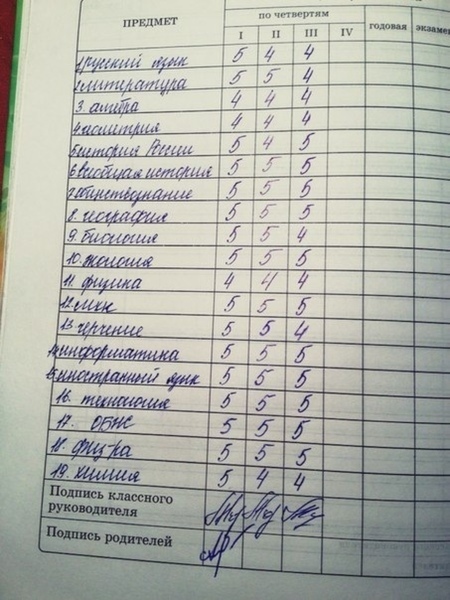 ПРЕДМЕТ по четвертям годовая экзаме
I II III IV
1 русский язык 5 4 4
2 литература 5 5 4
3. алгебра 4 4 4
4 геометрия 4 4 4
5 история России 5 4 5
6 всеобщая история 5 5 5
7 обществознание 5 5 5
8. география 5 5 5
9. биология 5 5 4
10. экология 5 5 5
11. физика 4 4 4
12. мхк 5 5 5
13 черчение 5 5 4
14 информатика 5 5 5
15 иностранный язык 5 5 5
16. технология 5 5 5
17. ОБЖ 5 5 5
18. физ-ра 5 5 5
19. химия 5 4 4
Подпись классного
руководителя
Подпись родителей